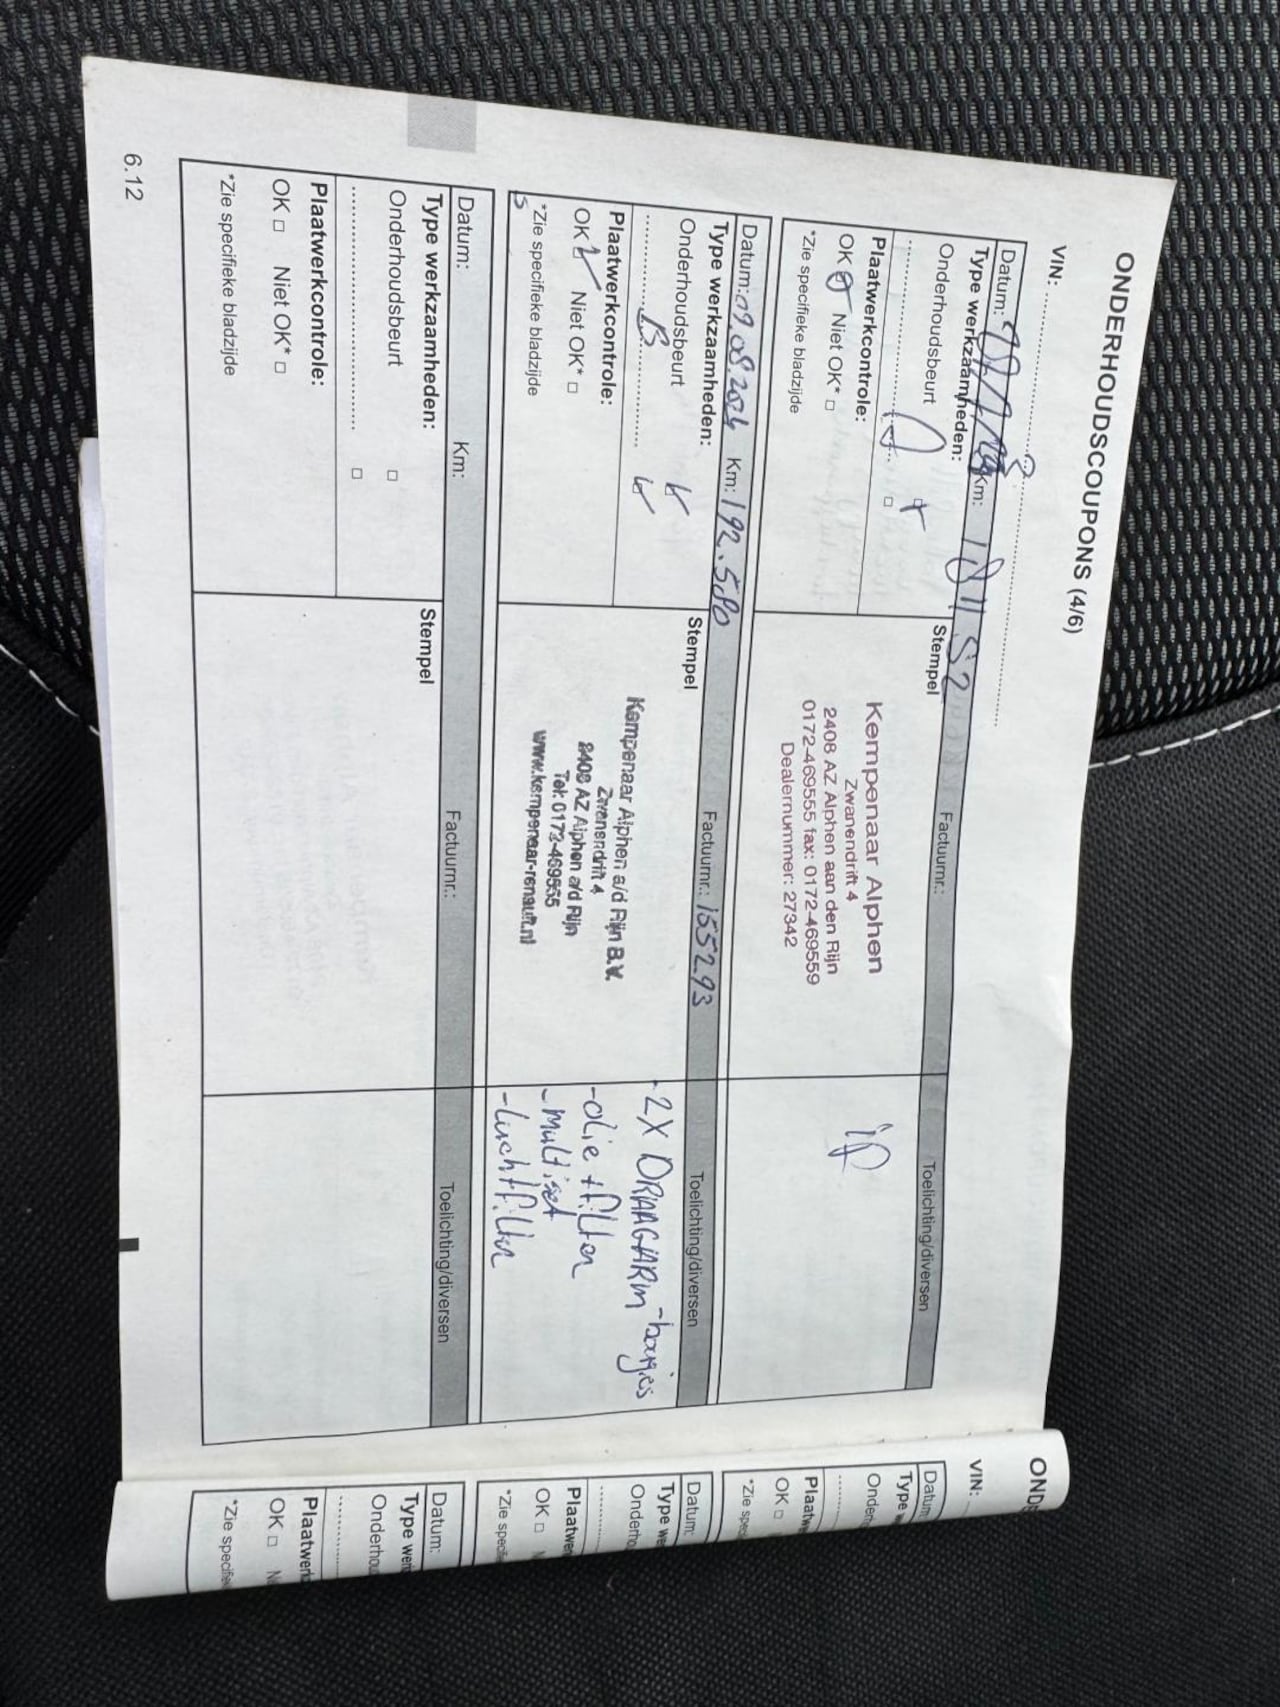 ONDERHOUDSCOUPONS (4/6)
VIN: ........................
Datum: Km: Factuurnr.: Toelichting/diversen
Type werkzaamheden: Stempel
Onderhoudsbeurt
Plaatwerkcontrole:
OK Niet OK* □
*Zie specifieke bladzijde
Kempenaar Alphen
Zwanendrift 4
2408 AZ Alphen aan den Rijn
0172-469555 fax: 0172-469559
Dealernummer: 27342
Datum: 09.08.2024 Km: 192.580 Factuurnr.: 155293 Toelichting/diversen
Type werkzaamheden: Stempel
Onderhoudsbeurt
B
Plaatwerkcontrole:
OK Niet OK* □
*Zie specifieke bladzijde
Kempenaar Alphen a/d Rijn B.V.
Zwanendrift 4
2408 AZ Alphen a/d Rijn
Tel: 0172-469555
www.kempenaar-renault.nl
- 2X DRAAGARM - bougies
- olie + filter
- multiset
- luchtfilter
Datum: Km: Factuurnr.: Toelichting/diversen
Type werkzaamheden: Stempel
Onderhoudsbeurt □
........................ □
Plaatwerkcontrole:
OK □ Niet OK* □
*Zie specifieke bladzijde
6.12
OND
VIN:
Datum
Type w
Onder
Plaatw
OK □
*Zie spec
Datum:
Type we
Onderho
Plaatwer
OK □ N
*Zie specifi
Datum:
Type werk
Onderhou
Plaatwerk
OK □ Ni
*Zie specifie